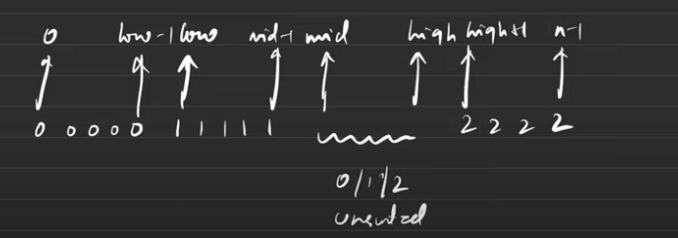 0 low-1 low mid-1 mid high high+1 n-1
0 0 0 0 0 1 1 1 1 1 2 2 2 2
0/1/2
unsorted